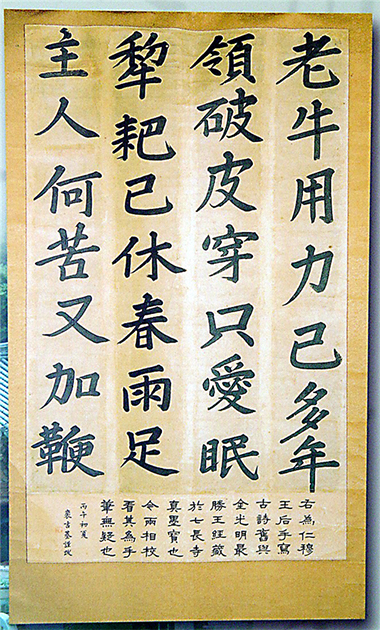 老牛用力已多年
領破皮穿只愛眠
犂耙已休春雨足
主人何苦又加鞭
右為仁穆
王后手寫
古詩舊與
金光明最
勝王經藏
於七長寺
真墨寶也
今兩相校
看其為手
筆無疑也
丙午初夏
裵吉基謹